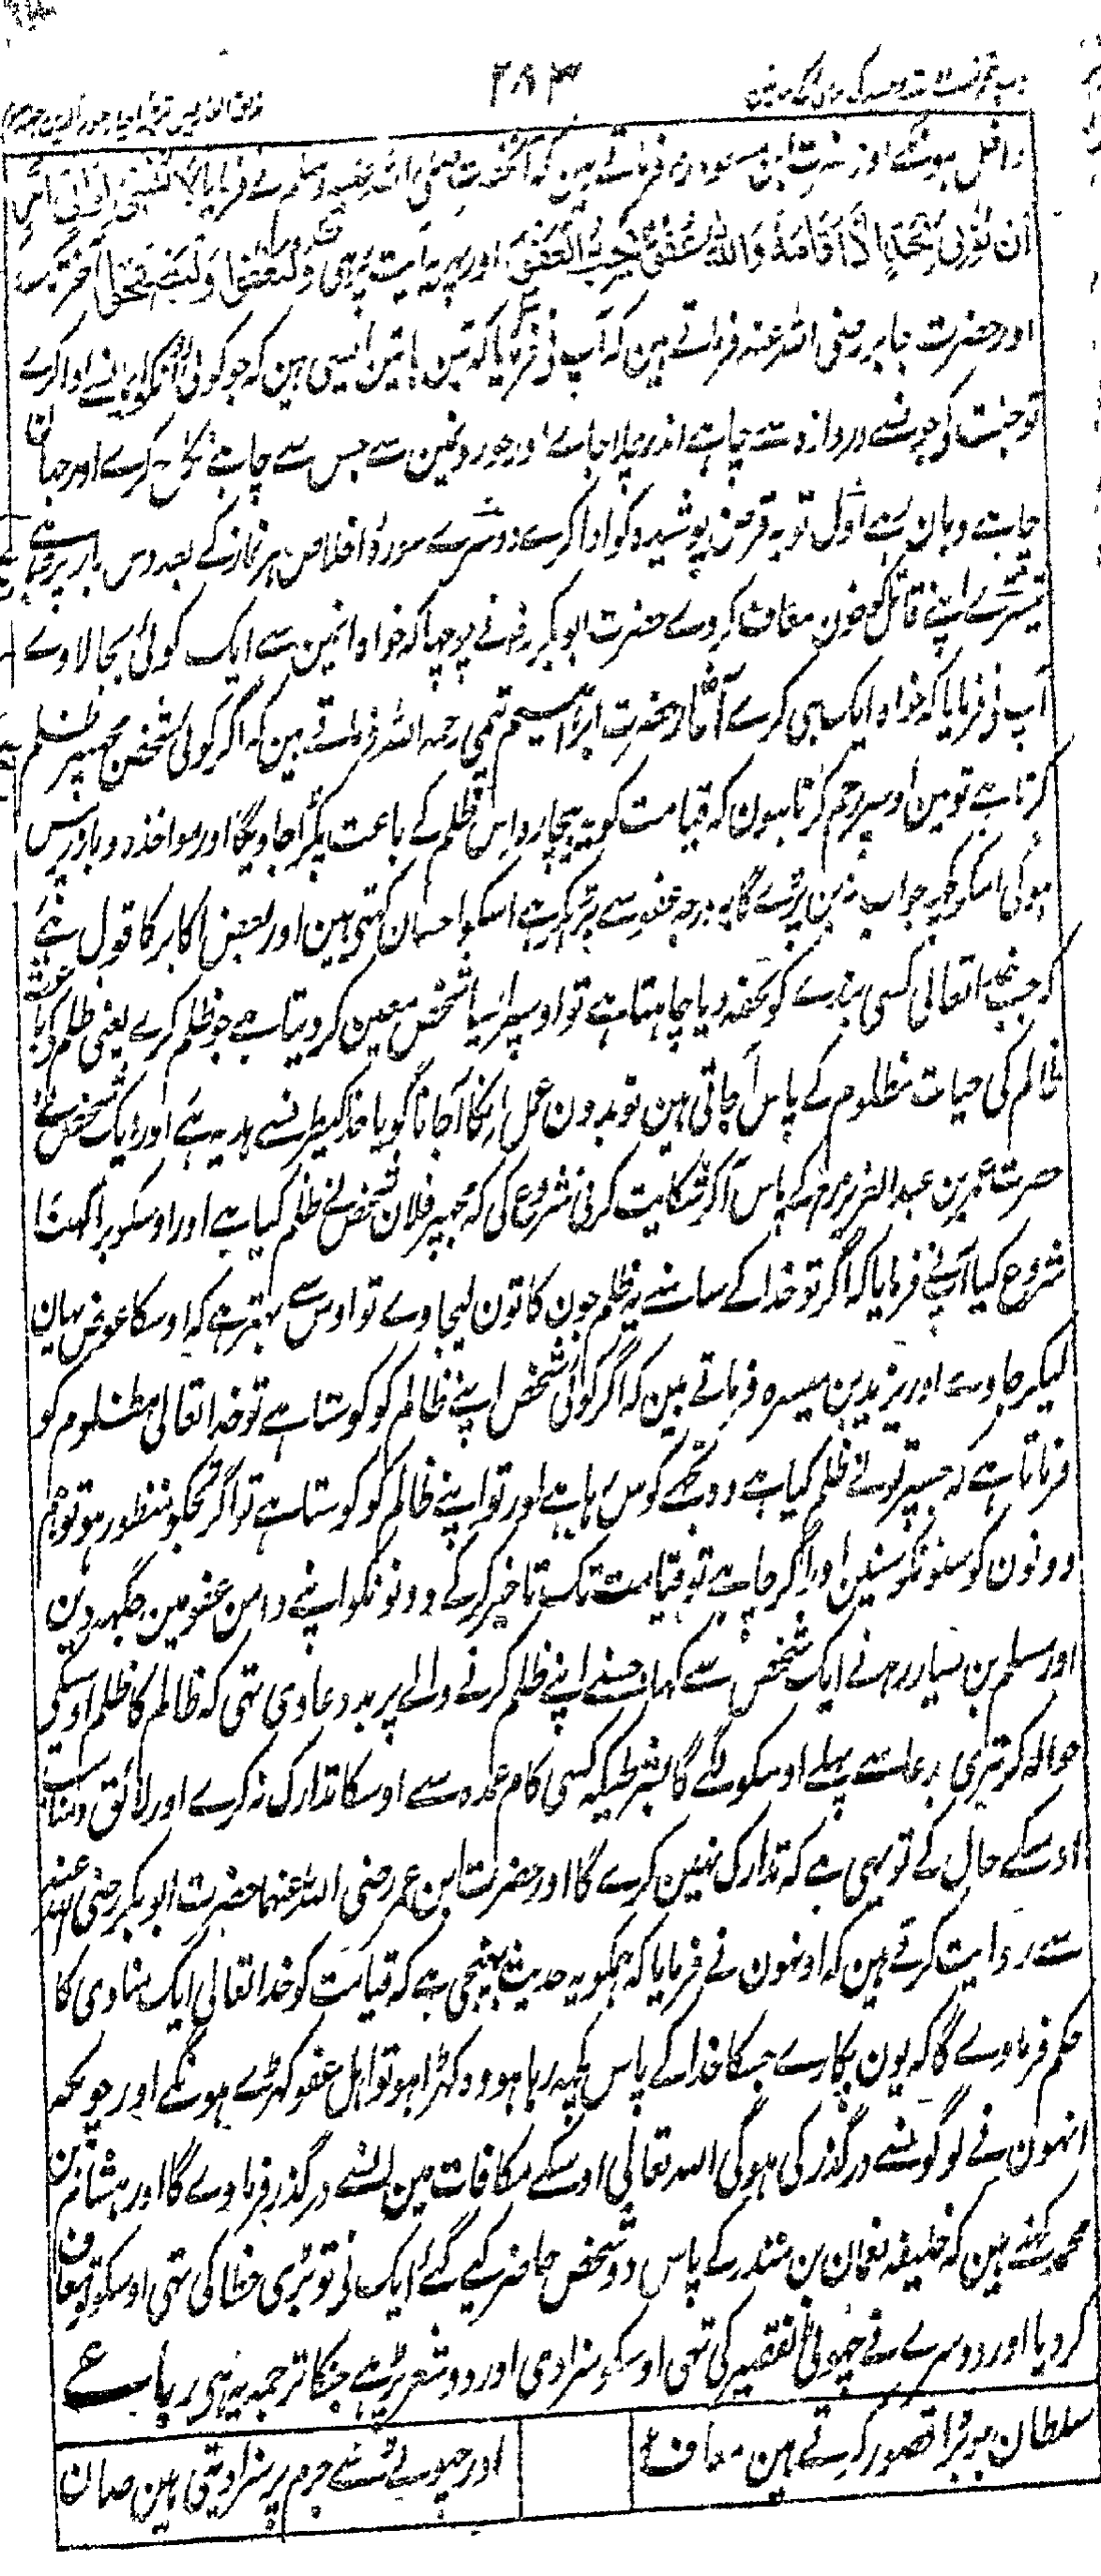 ۲۸۳
داخل ہونگے اور حضرت ابن مسعود رض فرماتے ہین کہ آنحضرت صلی اللہ علیہ وسلم نے فرمایا لا ینبغی لوالی امر
ان یوتی بحد الا اقامہ واللہ عفو یحب العفو اور پھر یہ آیت پڑھی ولیعفوا ولیصفحوا آخر تک
اور حضرت جابر رضی اللہ عنہ فرماتے ہین کہ آپ نے فرمایا کہ تین باتین ایسی ہین کہ جو کوئی انکو ادا کرے
تو جنت کی جونسے دروازہ سے چاہے اندر چلا جاے اور حورونمین سے جس سے چاہے نکاح کرے اور جہان
چاہے وہان رہے اول تو یہ قرض پوشیدہ کو ادا کرے دوسرے سورہ اخلاص ہر نماز کے بعد دس بار پڑھے
تیسرے اپنے قاتل کو خون معاف کردے حضرت ابوبکر رض نے پوچھا کہ خواہ انمین سے ایک کوئی بجا لاوے
آپ نے فرمایا کہ خواہ ایک ہی کرے آثار حضرت ابراہیم تیمی رحمہ اللہ فرماتے ہین کہ اگر کوئی شخص مجھپر ظلم
کرتا ہے تو مین اوسپر رحم کرتا ہون کہ قیامت کو یہ بیچارہ اس ظلم کے باعث پکڑا جاویگا اور مواخذہ و بازپرس
ہوگی اسکو کچھ جواب نہ بن پڑے گا یہ درجہ عفو سے بڑھکر ہے اسکو احسان کہتے ہین اور بعض اکابر کا قول ہے
کہ جب خدا تعالی کسی بندے کو تحفہ دیا چاہتا ہے تو اوسپر ایسا شخص معین کر دیتا ہے جو ظلم کرے یعنی ظلم کے باعث
ظالم کی حسات مظلوم کے پاس آجاتی ہین تو بدون عمل انکا آجانا گویا خدا کیطرف سے ہدیہ ہے اور ایک شخص نے
حضرت عمر بن عبد العزیز رح کے پاس آکر شکایت کرنی شروع کی کہ مجھپر فلان شخص نے ظلم کیا ہے اور اوسکو برا کہنا
شروع کیا آپنے فرمایا کہ اگر تو خدا کے سامنے یہ ظلم جون کا تون لیجاوے تو اوس سے بہتر ہے کہ اوسکا عوض یہان
لیکر جاوے اور یزید بن میسرہ فرماتے ہین کہ اگر کوئی شخص اپنے ظالم کو کوستا ہے تو خدا تعالی مظلوم کو
فرماتا ہے کہ جسپر تونے ظلم کیا ہے وہ تجھے کوس رہا ہے اور تو اپنے ظالم کو کوستا ہے تو اگر تجکو منظور ہو تو ہم
دونون کو سنو نکو سنین اور اگر چاہے تو قیامت تک تاخیر کرکے دونونکو اپنے دامن عفو مین جگہ دین
اور مسلم بن یسار رح نے ایک شخص سے کہا جسنے اپنے ظلم کرنے والے پر بددعا دی تھی کہ ظالم کا ظلم اوسکی
حوالہ کر تیری بدعا سے پہلے اوسکو لگے گا بشرطیکہ کسی کام عمدہ سے اوسکا تدارک نہ کرے اور لائق
اوسکے حال کے تو یہی ہے کہ تدارک نہین کرے گا اور حضرت ابن عمر رضی اللہ عنہما حضرت ابوبکر رضی اللہ عنہ
سے روایت کرتے ہین کہ اونہون نے فرمایا کہ ہمکو یہ حدیث پہنچی ہے کہ قیامت کو خدا تعالی ایک منادی کا
حکم فرماوے گا کہ یون پکارے جسکا خدا کے پاس کچھ رہا ہو وہ کہڑا ہو تو اہل عفو کہڑے ہونگے اور جو کچھ
انہون نے لوگونسے درگذر کی ہوگی اللہ تعالی اوسکے مکافات مین اونسے درگذر فرماوے گا اور ہشام بن
محمد کہتے ہین کہ خلیفہ نعمان بن منذر کے پاس دو شخص حاضر کیے گئے ایک نے تو بڑی خطا کی تھی اوسکو تو معاف
کردیا اور دوسرے نے چھوٹی تقصیر کی تھی اوسکو سزا دی اور دو شعر پڑھے جنکا ترجمہ یہ ہے
سلطان بڑا قصور کرتے ہین معاف
اور چھوٹے سے جرم پر سزا دیتی ہین صاف